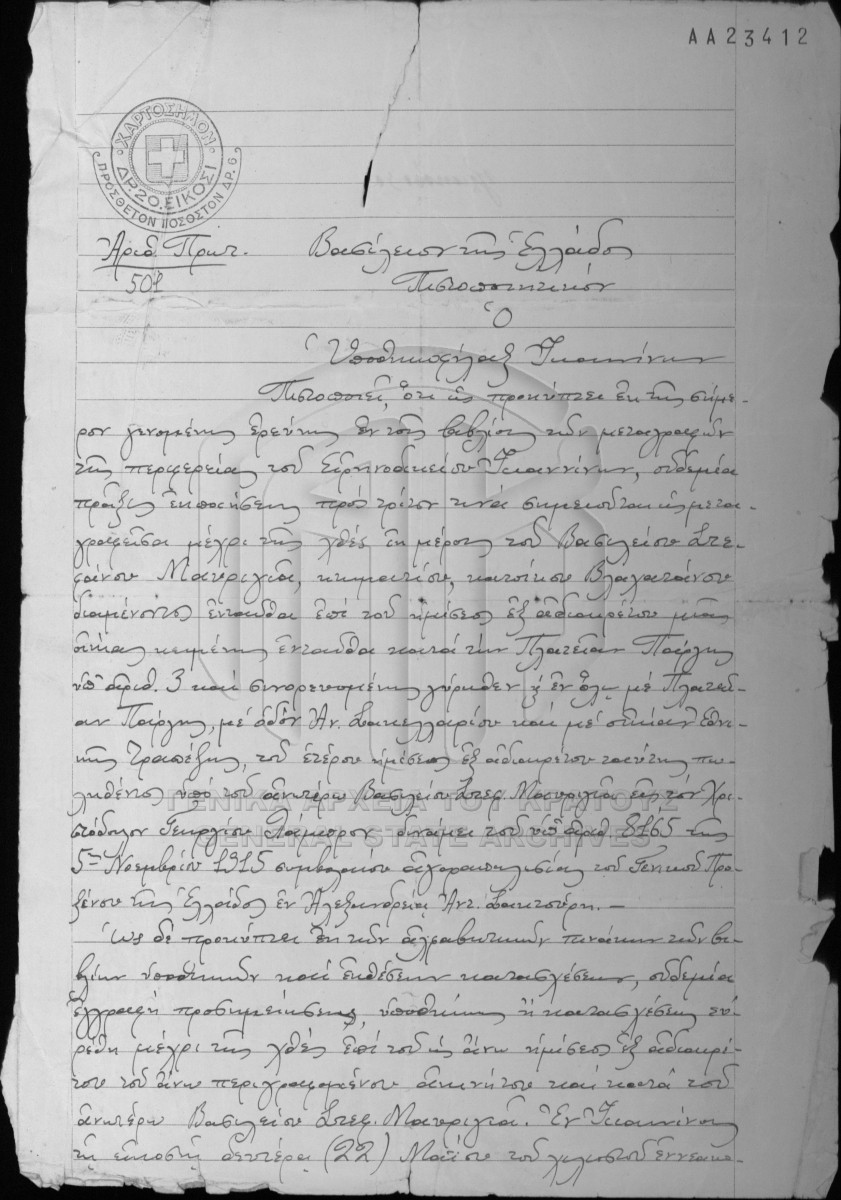 AA23412
ΧΑΡΤΟΣΗΜΟΝ
ΔΡ. 20. ΕΙΚΟΣΙ
ΠΡΟΣΘΕΤΟΝ ΠΟΣΟΣΤΟΝ ΔΡ. 6
Ἀριθ. Πρωτ. Βασίλειον τῆς Ἑλλάδος
501 Πιστοποιητικόν
Ὁ
Ὑποθηκοφύλαξ Ἰωαννίνων
Πιστοποιεῖ, ὅτι ὡς προκύπτει ἐκ τῆς σήμε-
ρον γενομένης ἐρεύνης ἐν τοῖς βιβλίοις τῶν μεταγραφῶν
τῆς περιφερείας τοῦ Εἰρηνοδικείου Ἰωαννίνων, οὐδεμία
πρᾶξις ἐκποιήσεως πρὸς τρίτον τινὰ σημειοῦται ὡς μετα-
γραφεῖσα μέχρι τῆς χθὲς ἐκ μέρους τοῦ Βασιλείου Στε-
φάνου Μαυριγιᾶ, κτηματίου, κατοίκου
διαμένοντος ἐνταῦθα ἐπὶ τοῦ ἡμίσεος ἐξ ἀδιαιρέτου μιᾶς
οἰκίας κειμένης ἐνταῦθα κατὰ τὴν Πλατεῖαν Πάργης
ὑπ' ἀριθ. 3 καὶ συνορευομένης γύρωθεν ἐν ὅλῳ μὲ Πλατεῖ-
αν Πάργης, μὲ ὁδὸν Ἀν. Σακελλαρίου καὶ μὲ οἰκίαν Ἐθνι-
κῆς Τραπέζης, τοῦ ἑτέρου ἡμίσεος ἐξ ἀδιαιρέτου ταύτης πω-
ληθέντος ὑπὸ τοῦ ἀνωτέρω Βασιλείου Στεφ. Μαυριγιᾶ εἰς τὸν Χρι-
στόδουλον Γεωργίου Λάμπρον δυνάμει τοῦ ὑπ' ἀριθ. 8165 τῆς
5ης Νοεμβρίου 1915 συμβολαίου ἀγοραπωλησίας τοῦ Γενικοῦ Προ-
ξένου τῆς Ἑλλάδος ἐν Ἀλεξανδρείᾳ Ἀντ. Σακτούρη. —
Ὡς δὲ προκύπτει ἐκ τῶν ἀλφαβητικῶν πινάκων τῶν βι-
βλίων ὑποθηκῶν καὶ ἐκθέσεων κατασχέσεων, οὐδεμία
ἐγγραφὴ προσημειώσεως, ὑποθήκης ἢ κατασχέσεως εὑ-
ρέθη μέχρι τῆς χθὲς ἐπὶ τοῦ ὡς ἄνω ἡμίσεος ἐξ ἀδιαιρέ-
του τοῦ ἄνω περιγραφομένου ἀκινήτου καὶ κατὰ τοῦ
ἀνωτέρω Βασιλείου Στεφ. Μαυριγιᾶ. Ἐν Ἰωαννίνοις
τῇ εἰκοστῇ δευτέρᾳ (22) Μαΐου τοῦ χιλιοστοῦ ἐννεακο-
ΓΕΝΙΚΑ ΑΡΧΕΙΑ ΤΟΥ ΚΡΑΤΟΥΣ
GENERAL STATE ARCHIVES